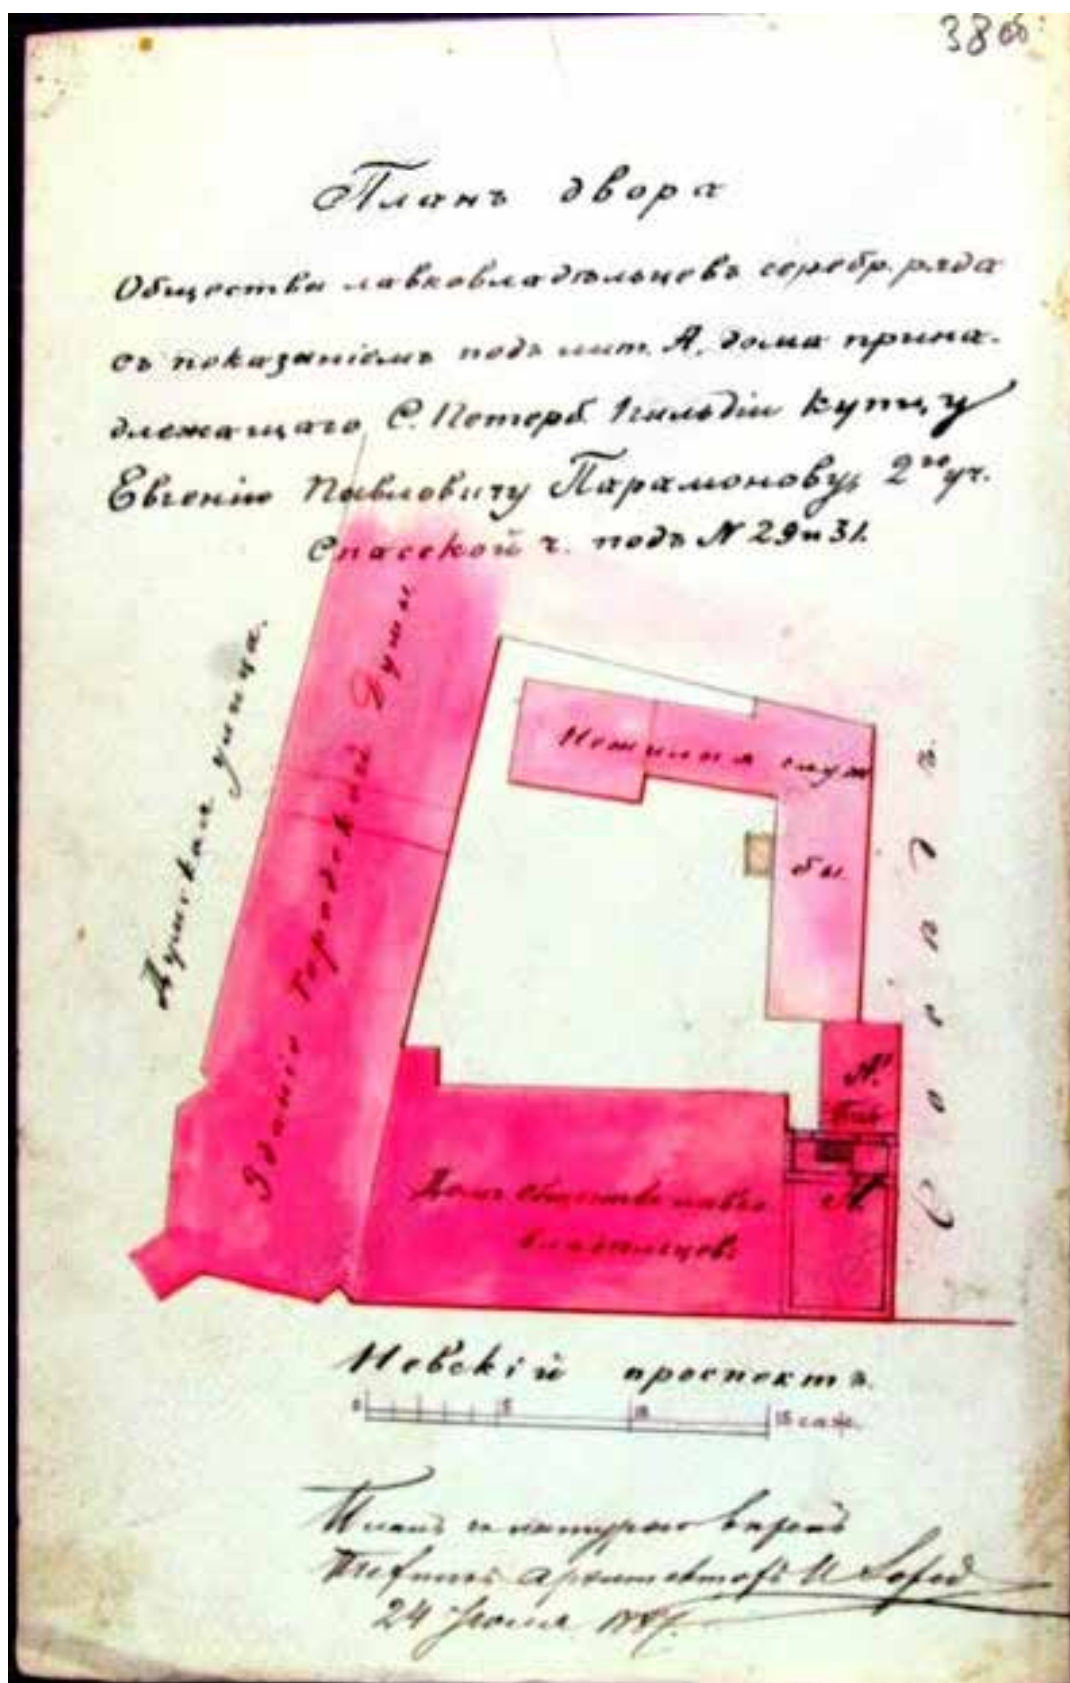 38 об.
Планъ двора
Общества лавковладѣльцевъ серебр. ряда
съ показаніемъ подъ лит. А. дома прина-
длежащаго С. Петерб. 1 гильдіи купцу
Евгенію Павловичу Парамонову, 2го уч.
Спасской ч. подъ N 29 и 31.
Думская улица.
Зданіе Городской Думы.
Нежилыя служ
бы.
А'
А
Домъ Общества лавко
владѣльцевъ.
Невскій проспектъ.
0 5 10 15 саж.
Планъ съ натурою вѣренъ
архитекторъ
24